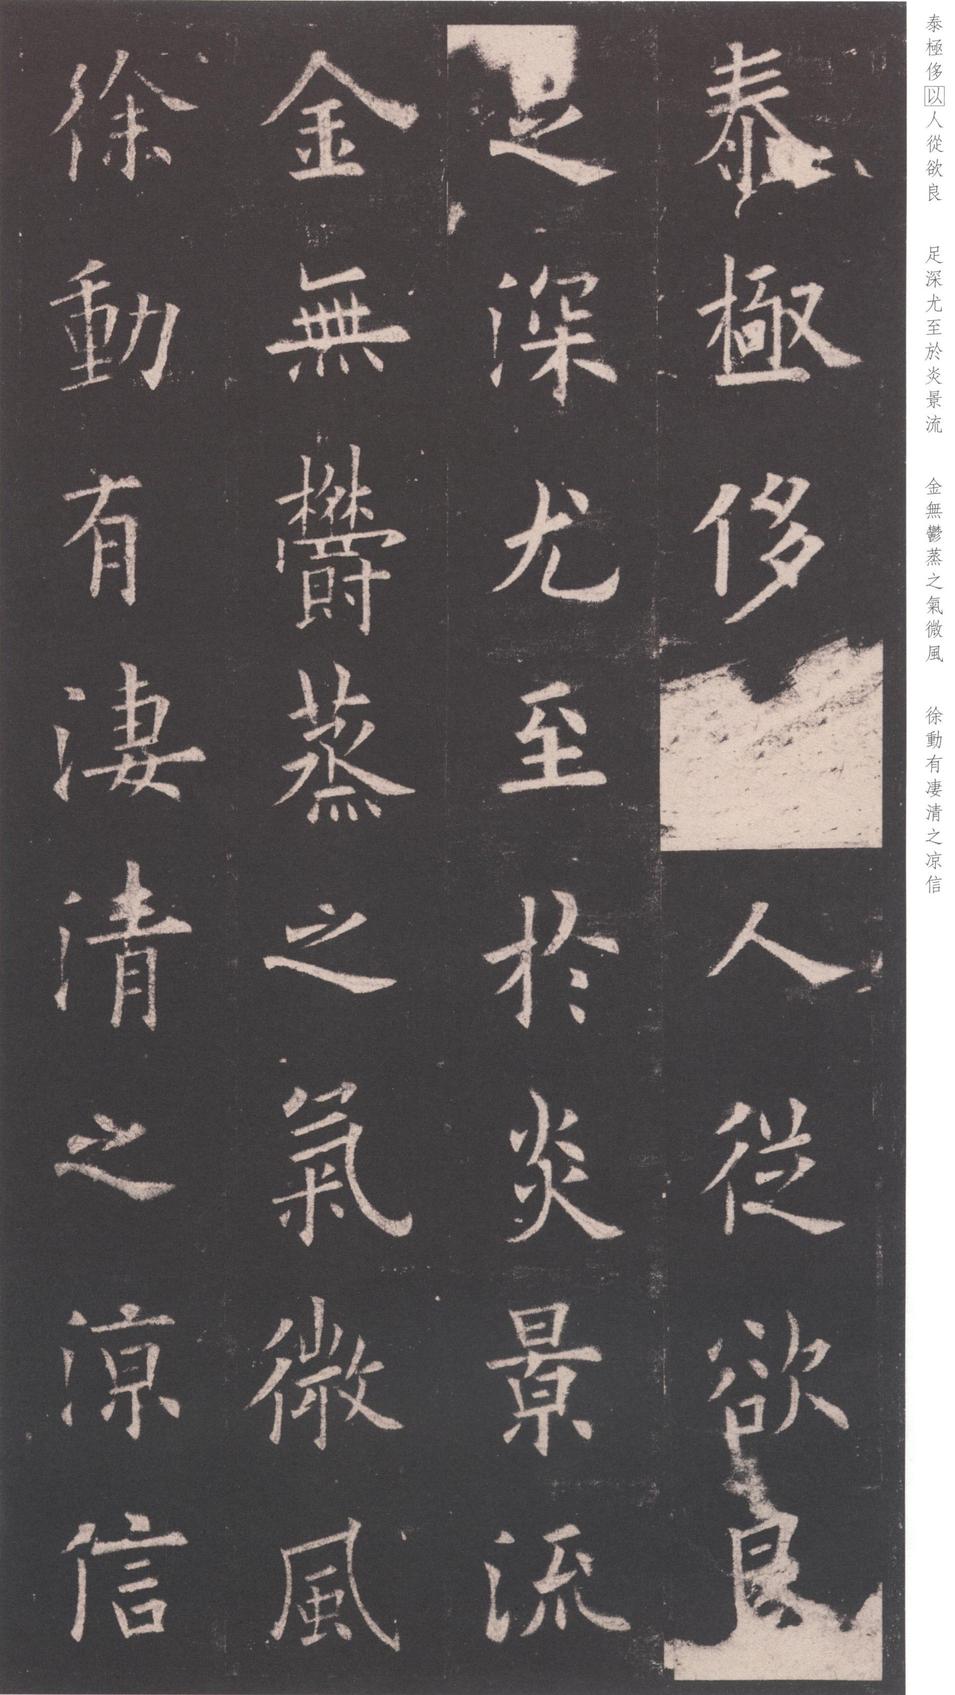 泰極侈以人從欲良　足深尤至於炎景流　金無鬱蒸之氣微風　徐動有凄清之凉信
泰極侈人從欲良
足深尤至於炎景流
金無欝蒸之氣微風
徐動有淒清之涼信